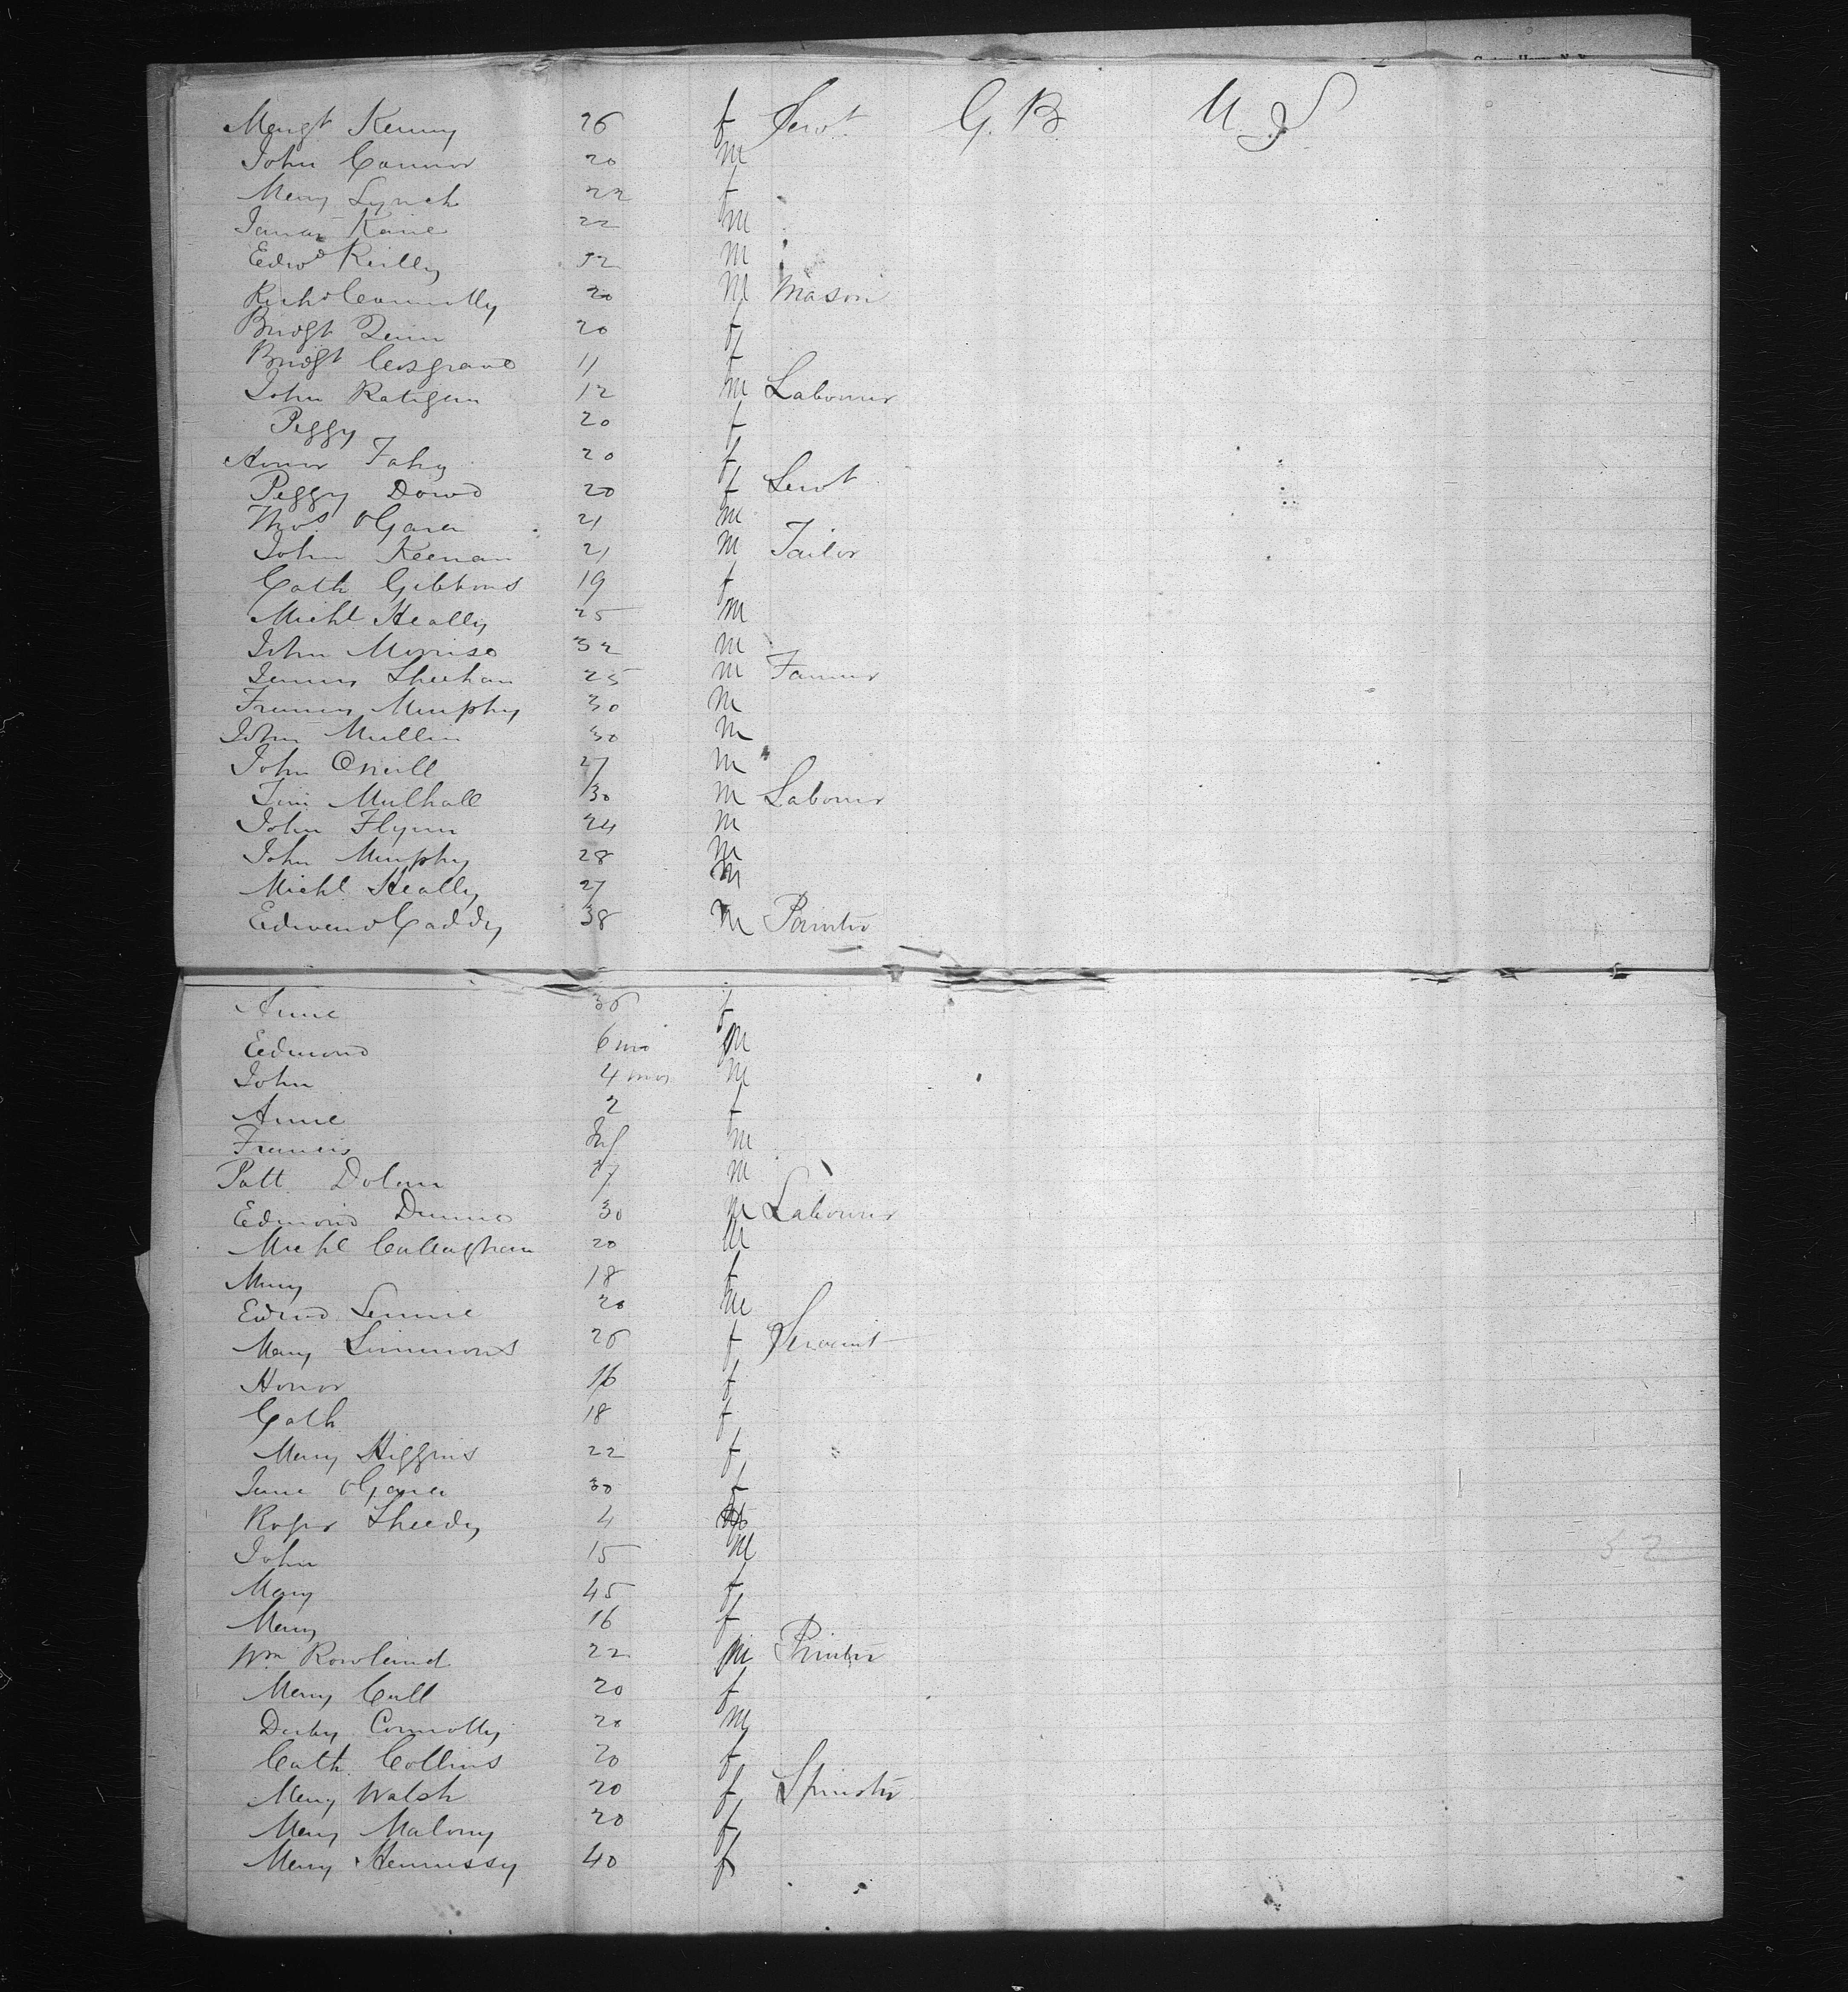 Margt Kenny 26 f Servt G.B. U.S
John Connor 20 m
Mary Lynch 22 f
James Kane 22 m
Edwd Reilly 52 m
Richd Connolly 20 m Mason
Bridgt Quinn 20 f
Bridgt Cosgrave 11 f
John Ratigan 12 m Labourer
Peggy 20 f
Honor Fahy 20 f
Peggy Dowd 20 f Servt
Thos. OGara 21 m
John Keenan 21 m Tailor
Cath Gibbons 19 f
Michl Heally 25 m
John Morriso 32 m
James Sheehan 25 m Farmer
Francis Murphy 30 m
John Mullin 30 m
John Oneill 27 m
Tim Mulhall 30 m Labourer
John Flynn 24 m
John Murphy 28 m
Michl Heally 27 m
Edward Caddy 38 m Painter
Anne 36 f
Edmond 6 mo m
John 4 mos m
Anne 2 f
Francis Inf m
Patt Dolan 27 m
Edmond Dunne 30 m Labourer
Michl Callaghan 20 m
Mary 18 f
Edwd Lennie 20 m
Mary Simmons 26 f Servant
Honor 16 f
Cath 18 f
Mary Higgins 22 f
Jane OGara 30 f
Roger Sheedy 4
John 15 m
Mary 45 f
Mary 16 f
Wm Rowland 22 m Printer
Mary Cull 20 f
Darby Connolly 20 m
Cath Collins 20 f
Mary Walsh 20 f Spinster
Mary Malony 20 f
Mary Hennessy 40 f